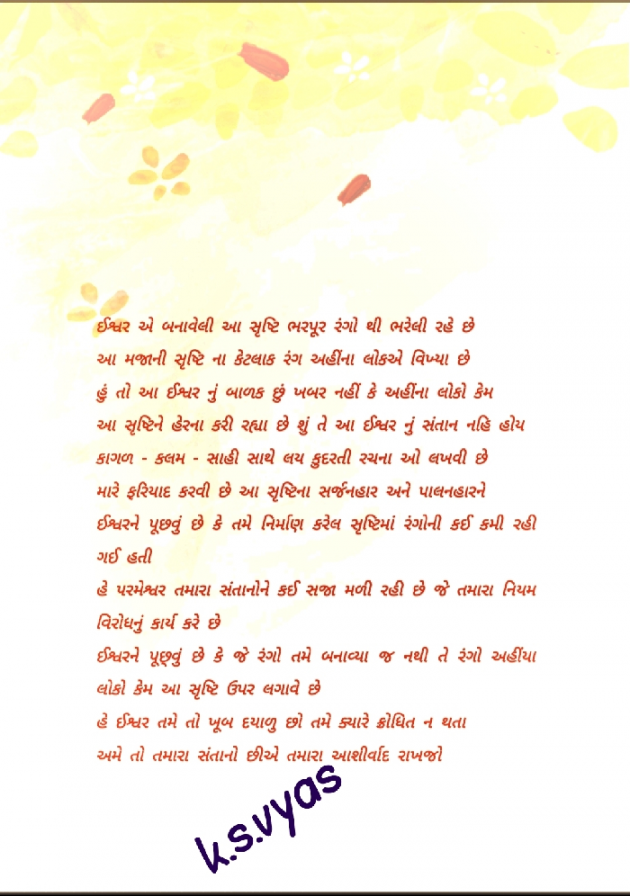 ઈશ્વર એ બનાવેલી આ સૃષ્ટિ ભરપૂર રંગો થી ભરેલી રહે છે
આ મજાની સૃષ્ટિ ના કેટલાક રંગ અહીંના લોકએ વિખ્યા છે
હું તો આ ઈશ્વર નું બાળક છું ખબર નહીં કે અહીંના લોકો કેમ
આ સૃષ્ટિને હેરના કરી રહ્યા છે શું તે આ ઈશ્વર નું સંતાન નહિ હોય
કાગળ - કલમ - સાહી સાથે લય કુદરતી રચના ઓ લખવી છે
મારે ફરિયાદ કરવી છે આ સૃષ્ટિના સર્જનહાર અને પાલનહારને
ઈશ્વરને પૂછવું છે કે તમે નિર્માણ કરેલ સૃષ્ટિમાં રંગોની કઈ કમી રહી
ગઈ હતી
હે પરમેશ્વર તમારા સંતાનોને કઈ સજા મળી રહી છે જે તમારા નિયમ
વિરોધનું કાર્ય કરે છે
ઈશ્વરને પૂછ્વું છે કે જે રંગો તમે બનાવ્યા જ નથી તે રંગો અહીંયા
લોકો કેમ આ સૃષ્ટિ ઉપર લગાવે છે
હે ઈશ્વર તમે તો ખૂબ દયાળુ છો તમે ક્યારે ક્રોધિત ન થતા
અમે તો તમારા સંતાનો છીએ તમારા આશીર્વાદ રાખજો
k.s.vyas